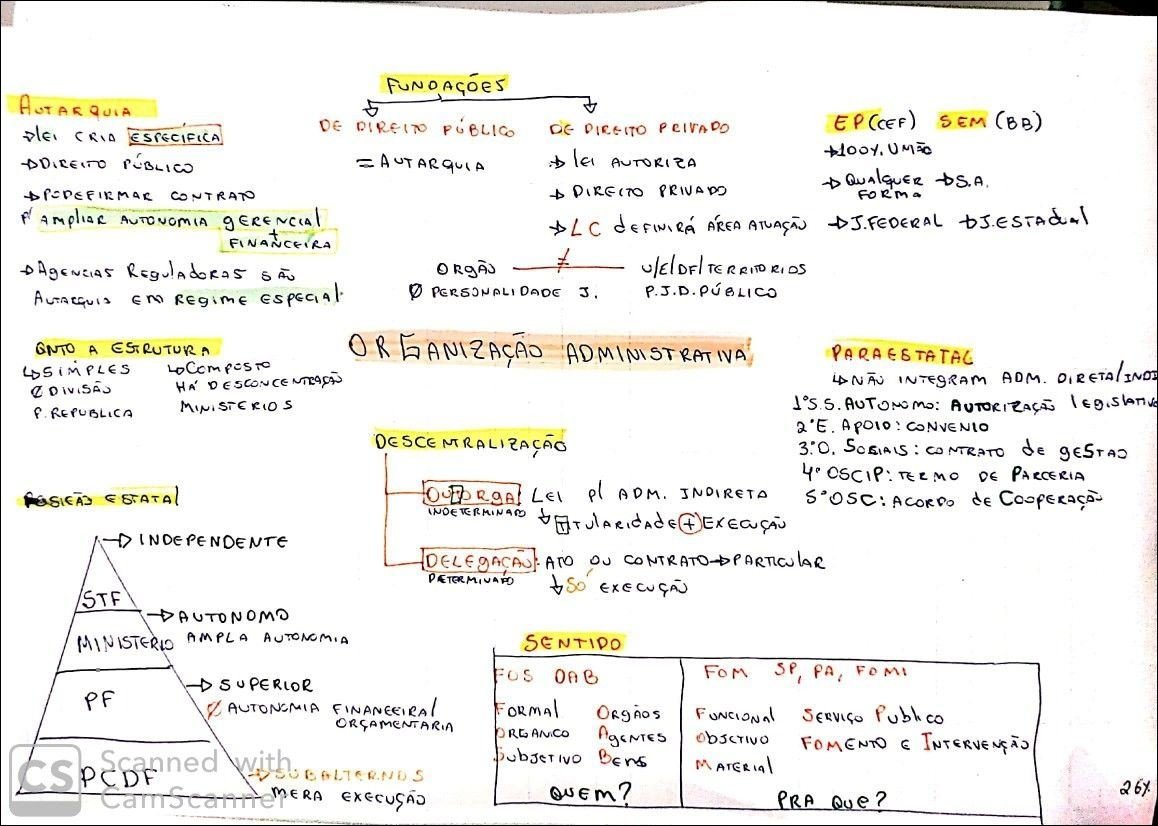 FUNDAÇÕES
AUTARQUIA
→LEI CRIA ESPECÍFICA
→DIREITO PÚBLICO
→PODEFIRMAR CONTRATO
P/ AMPLIAR AUTONOMIA GERENCIAL
+
FINANCEIRA
→AGENCIAS REGULADORAS SÃO
AUTARQUIS EM REGIME ESPECIAL
DE DIREITO PÚBLICO
= AUTARQUIA
DE DIREITO PRIVADO
→ LEI AUTORIZA
→ DIREITO PRIVADO
→ LC DEFINIRÁ ÁREA ATUAÇÃO
ORGÃO ≠ U/E/DF/TERRITORIOS
Ø PERSONALIDADE J. P.J.D.PÚBLICO
EP(CEF) SEM (BB)
→100% UNIÃO
→ QUALQUER →S.A.
FORMA
→J.FEDERAL →J.ESTADUAL
QNTO A ESTRUTURA
↳SIMPLES ↳COMPOSTO
Ø DIVISÃO HÁ DESCONCENTRAÇÃO
P. REPUBLICA MINISTERIOS
ORGANIZAÇÃO ADMINISTRATIVA
PARAESTATAL
↳NÃO INTEGRAM ADM. DIRETA/INDI
1°S.S. AUTONOMO: AUTORIZAÇÃO LEGISLATIV
2°E. APOIO: CONVENIO
3°O. SOCIAIS: CONTRATO DE GESTÃO
4° OSCIP: TERMO DE PARCERIA
5°OSC: ACORDO DE COOPERAÇÃO
DESCENTRALIZAÇÃO
OUTORGA LEI P/ ADM. INDIRETA
INDETERMINADO ↳TITULARIDADE + EXECUÇÃO
DELEGAÇÃO: ATO OU CONTRATO→PARTICULAR
DETERMINADO ↳SÓ EXECUÇÃO
POSIÇÃO ESTATAL
→ INDEPENDENTE
STF
→ AUTONOMO
MINISTERIO AMPLA AUTONOMIA
→ SUPERIOR
PF
Ø AUTONOMIA FINANCEIRA/
ORÇAMENTARIA
PCDF
→SUBALTERNOS
MERA EXECUÇÃO
SENTIDO
FOS OAB
FORMAL ORGÃOS
ORGANICO AGENTES
SUBJETIVO BENS
QUEM?
FOM SP, PA, FOMI
FUNCIONAL SERVIÇO PUBLICO
OBJETIVO FOMENTO E INTERVENÇÃO
MATERIAL
PRA QUE?
CS Scanned with
CamScanner